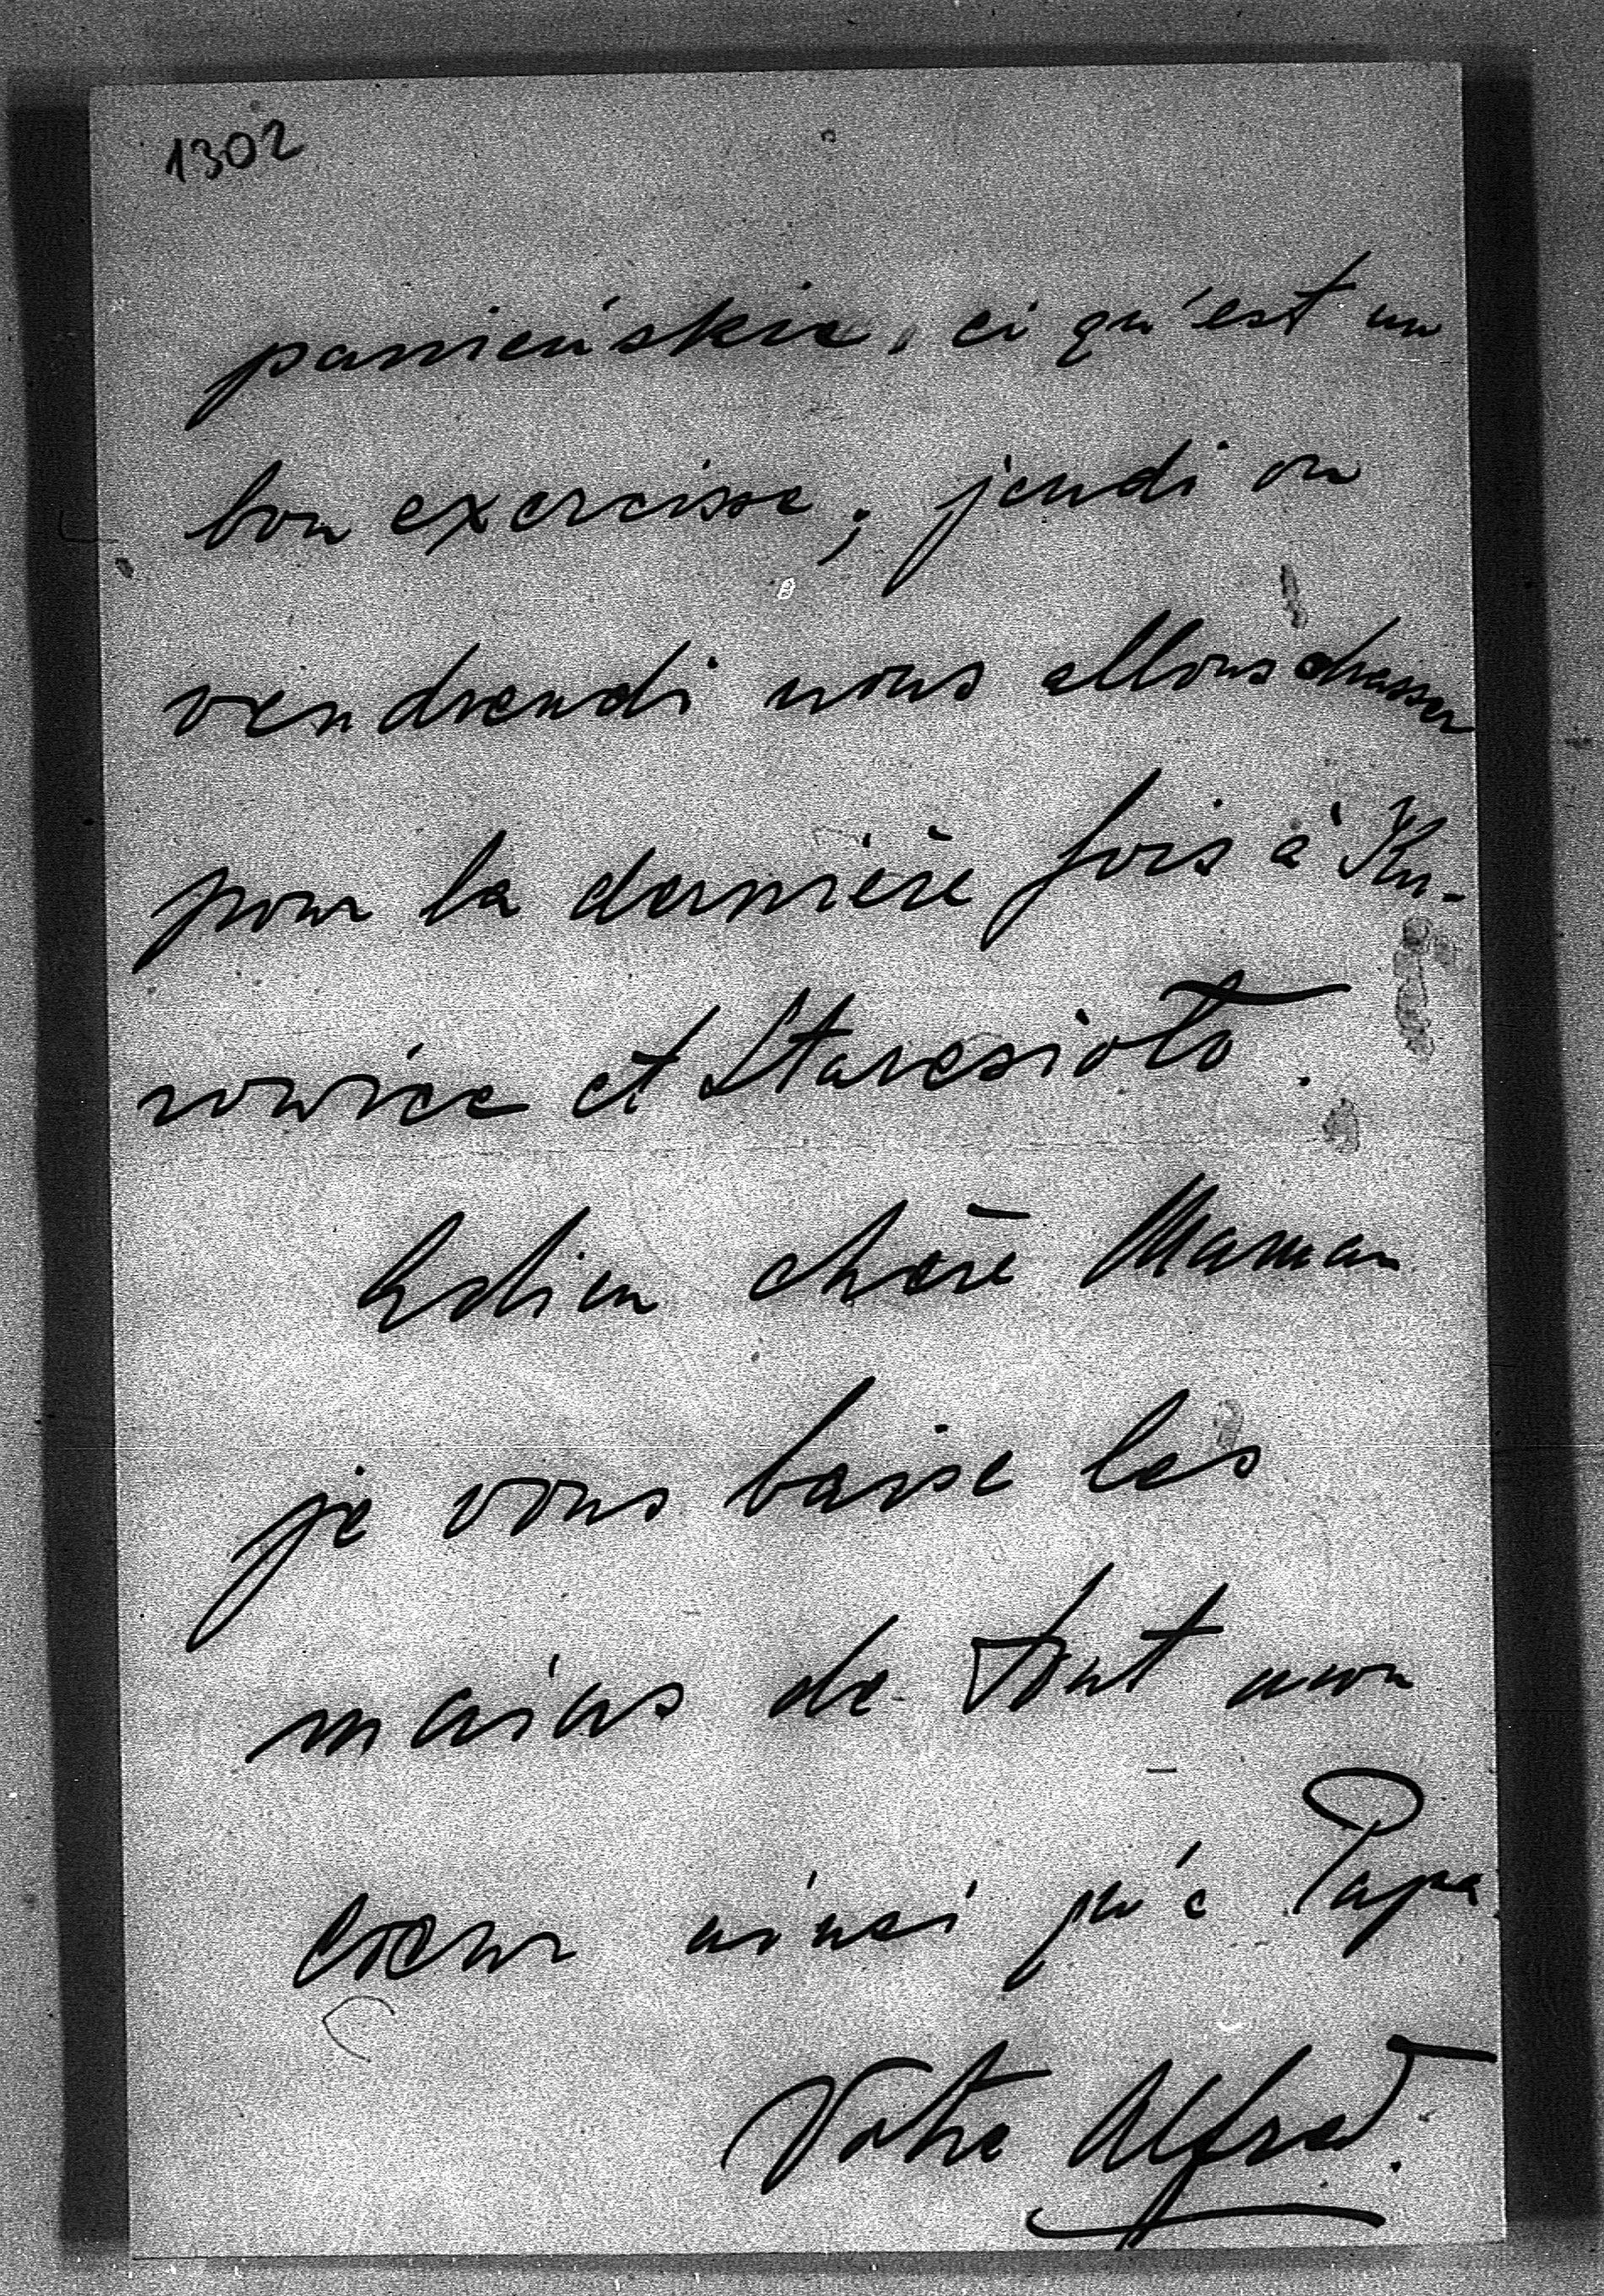 1302
panieńskie, ci qu'est un
bon exercisse; jeudi on
vendrendi nous allons chasser
pour la dernière fois à Ku-
rowice et Staresioło.
Adieu chère Maman
je vous baise les
mains de tout mon
coeur ainsi qu'à Papa.
Votre Alfred.